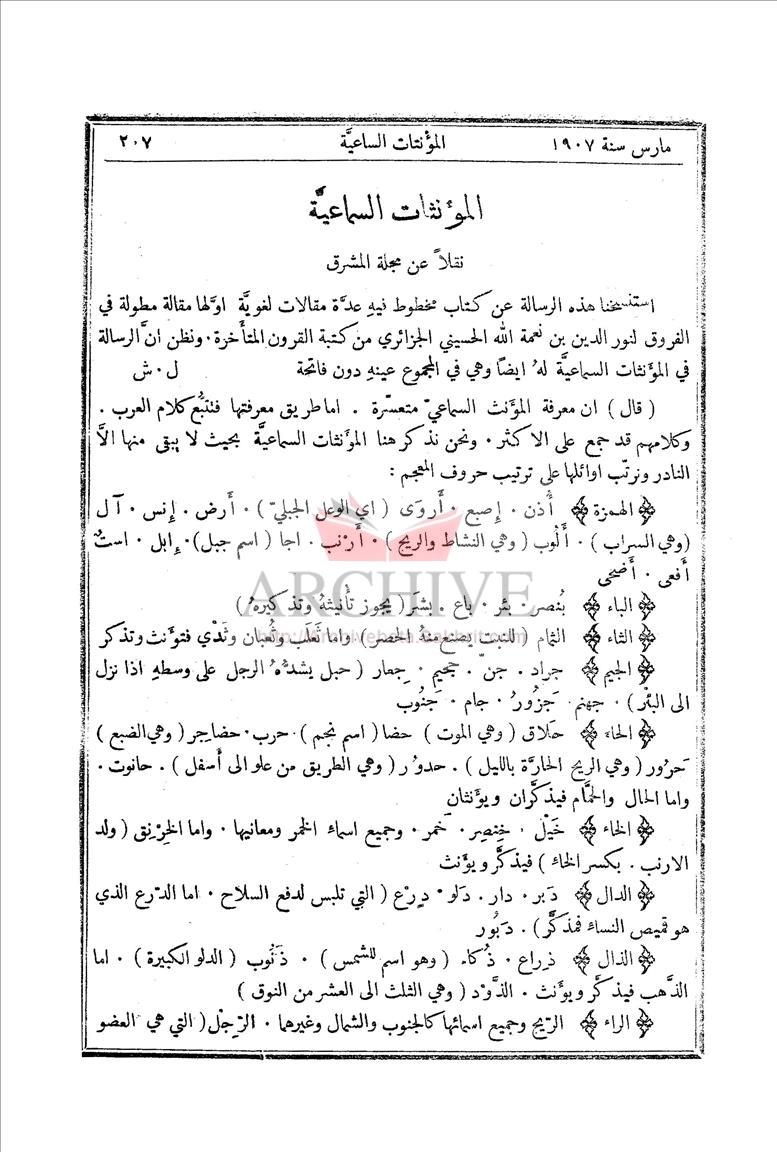 مارس سنة ١٩٠٧ المؤنثات الساعيَّة ٢٠٧
المؤنثات السماعيَّة
نقلاً عن مجلة المشرق
استنسخنا هذه الرسالة عن كتاب مخطوط فيهِ عدَّة مقالات لغويَّة اوَّلها مقالة مطولة في
الفروق لنور الدين بن نعمة الله الحسيني الجزائري من كتبة القرون المتأخرة. ونظن انَّ الرسالة
في المؤنثات السماعيَّة لهُ ايضًا وهي في المجموع عينهِ دون فاتحة ل. ش
( قال ) ان معرفة المؤنث السماعيّ متعسّرة . اما طريق معرفتها فتتبُّع كلام العرب .
وكلامهم قد جمع على الاكثر . ونحن نذكر هنا المؤنثات السماعيَّة بحيث لا يبقى منها الاَّ
النادر ونرتّب اوائلها على ترتيب حروف المعجم :
﴿ الهمزة ﴾ أُذن . إصبع . أَروَى ( اي الوعل الجبليّ ) . أَرض . إنس . آل
(وهي السراب ) . أَلُوب ( وهي النشاط والريح ) . أَرْنب . اجا ( اسم جبل). إبل . استٌ
أفعى . أَضحى
﴿ الباء ﴾ بُنصر . بئر . باع . بشَر ( يجوز تأنيثهُ وتذكيرهُ )
﴿ الثاء ﴾ الثمام ( للنبت يصنع منهُ الحصر ) واما ثَعلب وثُعبان وثَدْي فتؤنث وتذكر
﴿ الجيم ﴾ جراد . جنّ . جحيم . جِعار ( حبل يشدُّهُ الرجل على وسطهِ اذا نزل
الى البئْر ) . جهنم . جَزُورُ . جام . جَنُوب
﴿ الحاء ﴾ حَلاق ( وهي الموت ) حضا ( اسم نجم ) . حرب . حضاجر ( وهي الضبع )
حَرُور ( وهي الريح الحارَّة بالليل ) . حدور ( وهي الطريق من علو الى أَسفل ) . حانوت .
واما الحال والحمَّام فيذكَّران ويؤنثان
﴿ الخاء ﴾ خَيْل . خِنصِر . خَمر . وجميع اسماء الخمر ومعانيها . واما الخِرْنِق ( ولد
الارنب . بكسر الخاء ) فيذكَّر ويؤنث
﴿ الدال ﴾ دَبر . دار . دلو . دِرْع ( التي تلبس لدفع السلاح . اما الدّرع الذي
هو قميص النساء فمذكَّر ) . دَبُور
﴿ الذال ﴾ ذِراع . ذُكاء ( وهو اسم للشمس ) . ذَنُوب ( الدلو الكبيرة ) . اما
الذَّهب فيذكَّر ويؤنث . الذَّوْد ( وهي الثلث الى العشر من النوق )
﴿ الراء ﴾ الرّيح وجميع اسمائها كالجنوب والشمال وغيرهما . الرِّجْل ( التي هي العضو
ARCHIVE